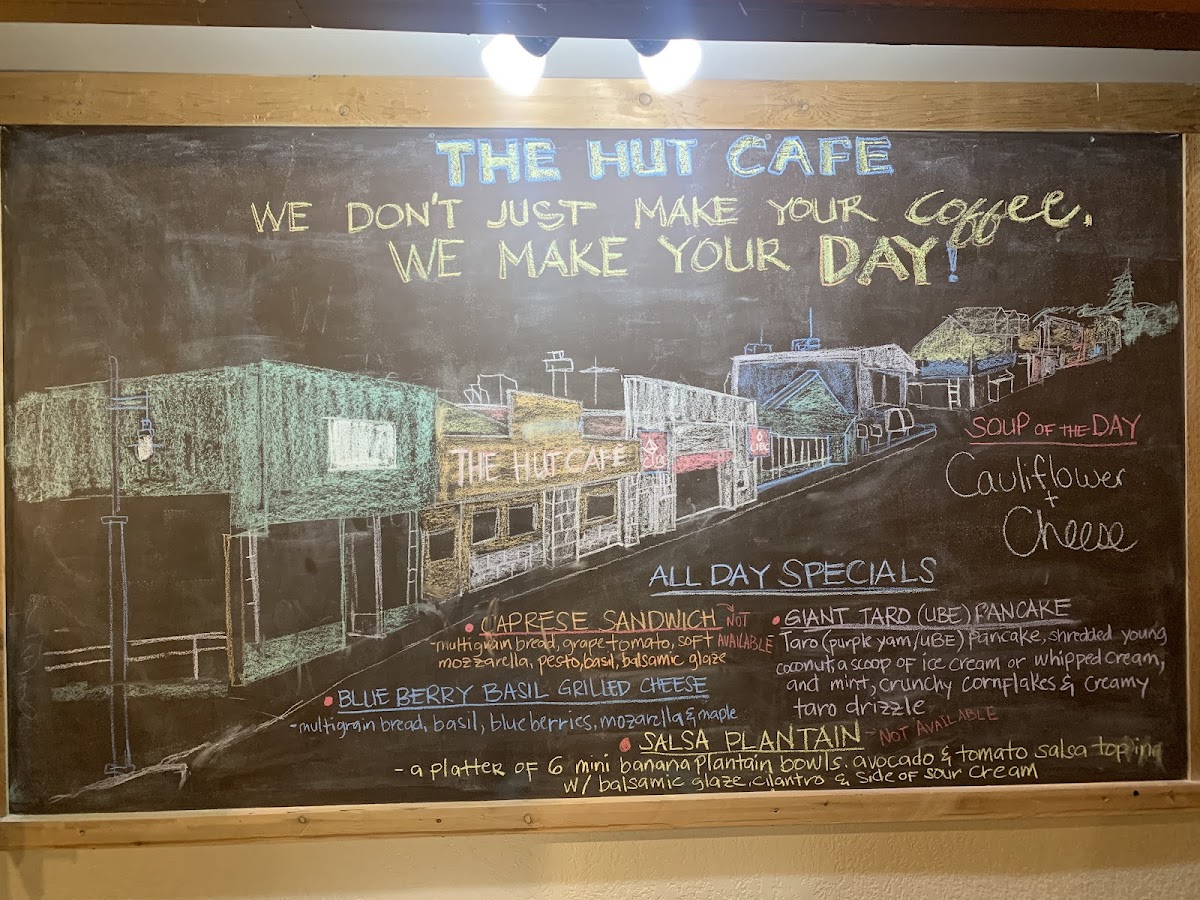 THE HUT CAFE
WE DON'T JUST MAKE YOUR Coffee.
WE MAKE YOUR DAY!
THE HUT CAFE
SOUP OF THE DAY
Cauliflower
+
Cheese
ALL DAY SPECIALS
• CAPRESE SANDWICH - NOT AVAILABLE
- multigrain bread, grape tomato, soft
mozzarella, pesto, basil, balsamic glaze
• BLUE BERRY BASIL GRILLED CHEESE
- multigrain bread, basil, blueberries, mozarella & maple
• GIANT TARO (UBE) PANCAKE
Taro (purple yam/UBE) pancake, shredded young
coconut, a scoop of ice cream or whipped cream,
and mint, crunchy cornflakes & creamy
taro drizzle
• SALSA PLANTAIN - NOT AVAILABLE
- a platter of 6 mini banana plantain bowls. avocado & tomato salsa topping
w/ balsamic glaze, cilantro & side of sour cream